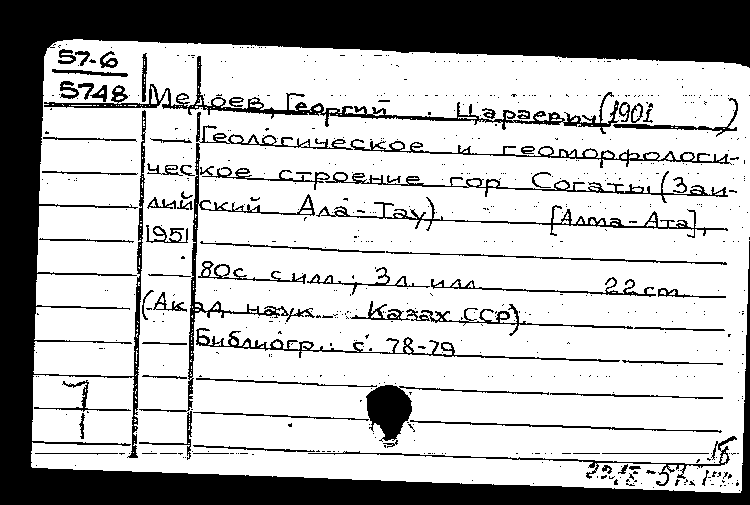 57-6
5748
Медоев, Георгий Цараевич (1901 )
Геологическое и геоморфологи-
ческое строение гор Согаты (Заи-
лийский Ала-Тау). [Алма-Ата],
1951
80с. с илл.; 3л. илл. 22cm.
(Акад. наук Казах ССР).
Библиогр.: с. 78-79
7
18